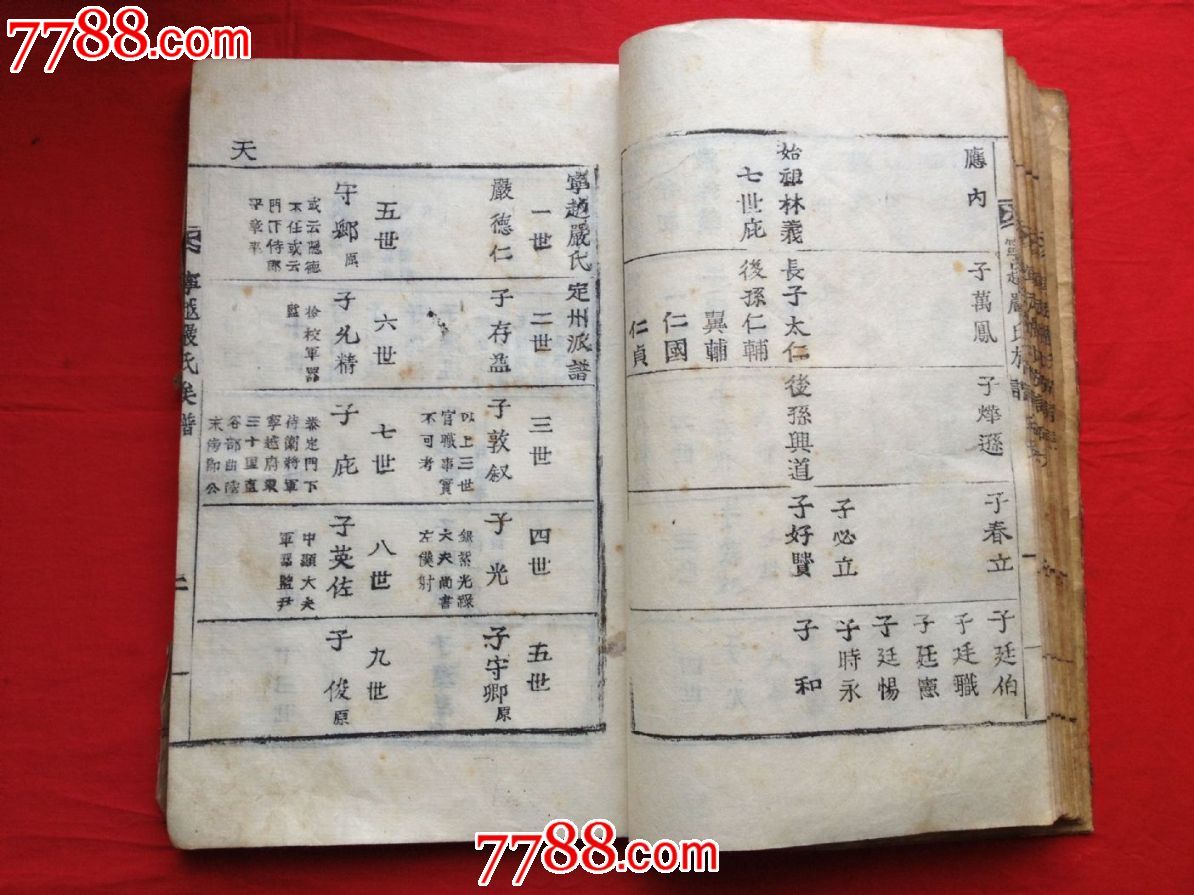 7788.com
應內
子萬鳳
子燁遜
子春立
子廷伯
子廷職
子廷憲
子廷惕
子時永
始祖林義
長子太仁
後孫興道
子必立
子好賢
子和
七世庇
後孫仁輔
翼輔
仁國
仁貞
嚴氏族譜
寧越嚴氏定州派譜
一世
嚴德仁
二世
子存盈
三世
子敦叙
以上三世
官職事實
不可考
四世
子光
銀紫光祿
大夫尚書
左僕射
五世
子守卿原
天
五世
守鄉原
或云隱德
不仕或云
門下侍郎
平章事
六世
子允精
檢校軍器
監
七世
子庇
泰定門下
侍蘭將軍
寧越府東
三十里直
谷部曲陸
末傍卽公
八世
子英佐
中顯大夫
軍器監尹
九世
子俊原
寧越嚴氏族譜
二
7788.com